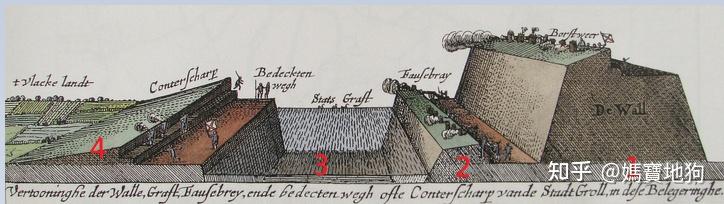 Borstweer
t vlacke landt
Conterscharp
Bedeckten
wegh
Fausebray
Stats Graft
De Wall
4
3
2
1
知乎 @媽寶地狗
Vertooninghe der Walle, Graft, Fausebrey, ende bedecten wegh ofte Conterscharp vande Stadt Groll, in dese Belegeringhe.